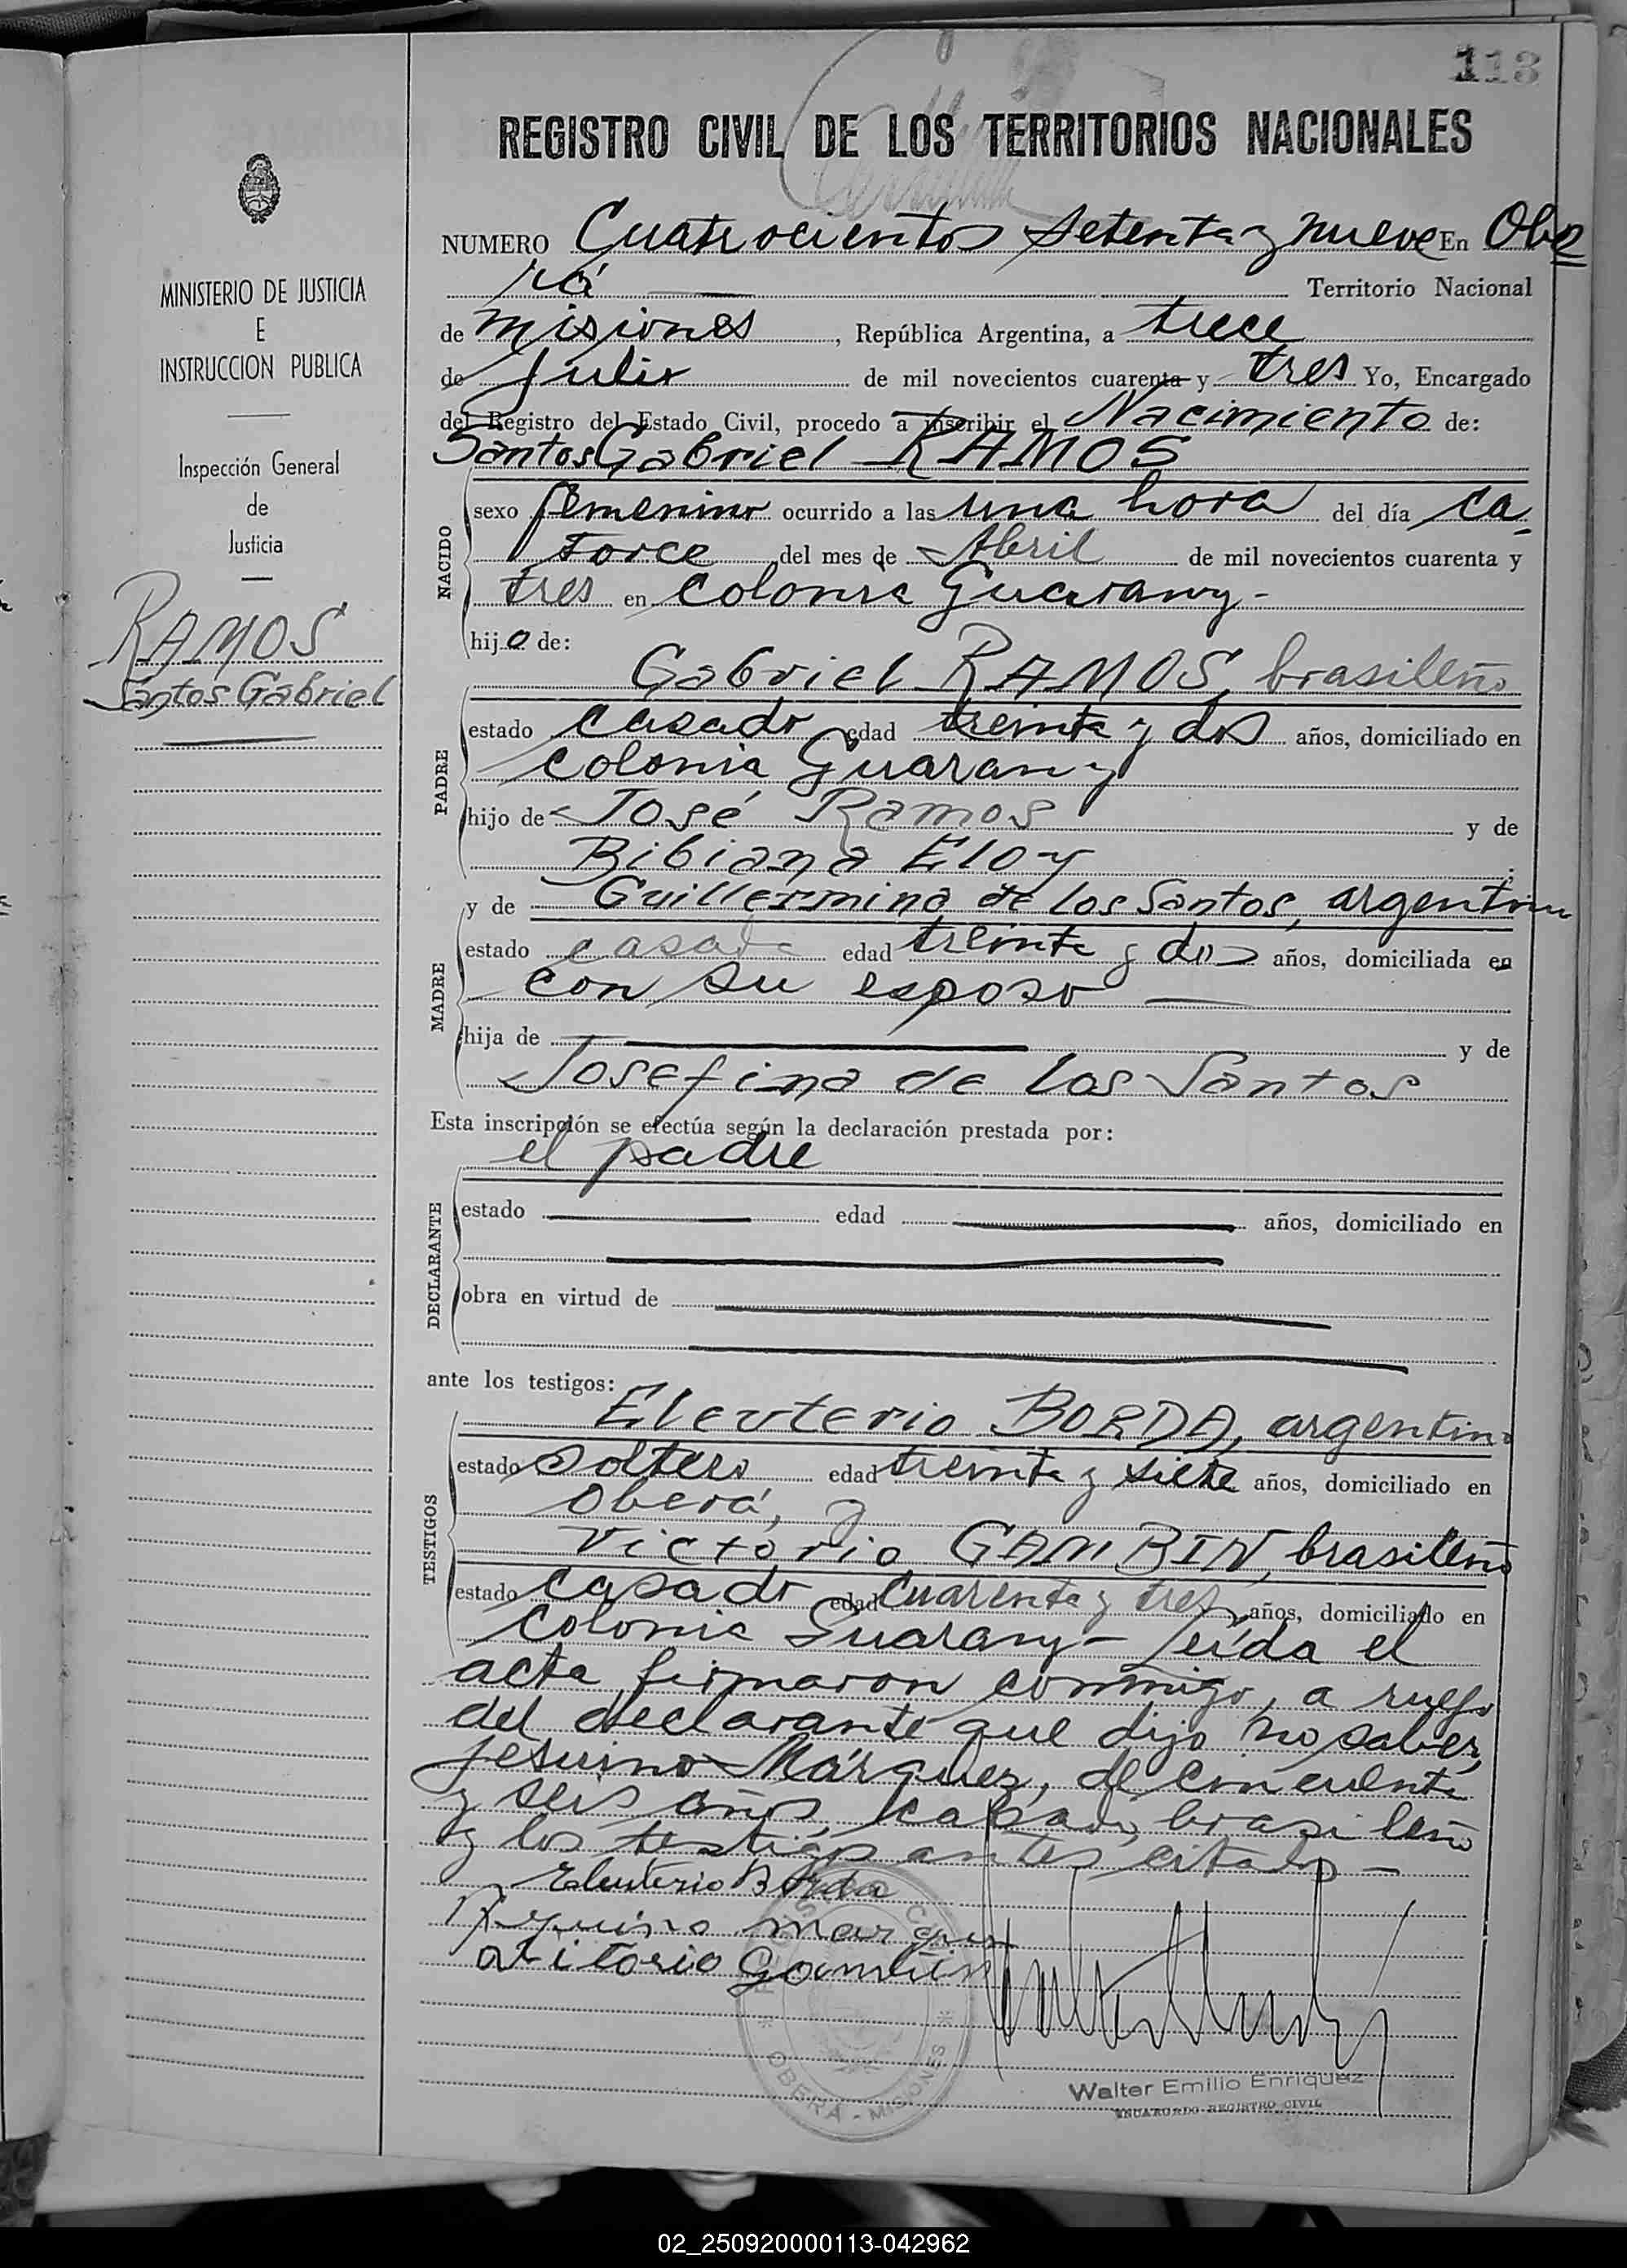 113
REGISTRO CIVIL DE LOS TERRITORIOS NACIONALES
NUMERO Cuatrocientos setenta y nueve En Obe
rá Territorio Nacional
de Misiones, República Argentina, a trece
de Julio de mil novecientos cuarenta y tres Yo, Encargado
del Registro del Estado Civil, procedo a inscribir el Nacimiento de:
Santos Gabriel RAMOS
NACIDO
sexo femenino ocurrido a las una hora del día ca-
torce del mes de Abril de mil novecientos cuarenta y
tres en Colonia Guarany-
hijo de:
Gabriel RAMOS, brasileño
PADRE
estado casado edad treinta y dos años, domiciliado en
Colonia Guarany
hijo de José Ramos y de
Bibiana Eloy
y de Guillermina de los Santos, argentina
MADRE
estado casada edad treinta y dos años, domiciliada en
con su esposo
hija de y de
Josefina de los Santos
Esta inscripción se efectúa según la declaración prestada por:
el padre
DECLARANTE
estado edad años, domiciliado en
obra en virtud de
ante los testigos:
Eleuterio BORDA, argentino
TESTIGOS
estado soltero edad treinta y siete años, domiciliado en
Oberá, y
Victorio GAMBIN, brasileño
estado casado edad cuarenta y tres años, domiciliado en
Colonia Guarany- leída el
acta firmaron conmigo, a ruego
del declarante que dijo no saber,
Jesuino Márquez, de cincuenta
y seis años, casado, brasileño
y los testigos antes citados-
Eleuterio Borda
Walter Emilio Enriquez
ENCARGADO REGISTRO CIVIL
OBERA - MISIONES
MINISTERIO DE JUSTICIA
E
INSTRUCCION PUBLICA
Inspección General
de
Justicia
RAMOS
Santos Gabriel
02_250920000113-042962